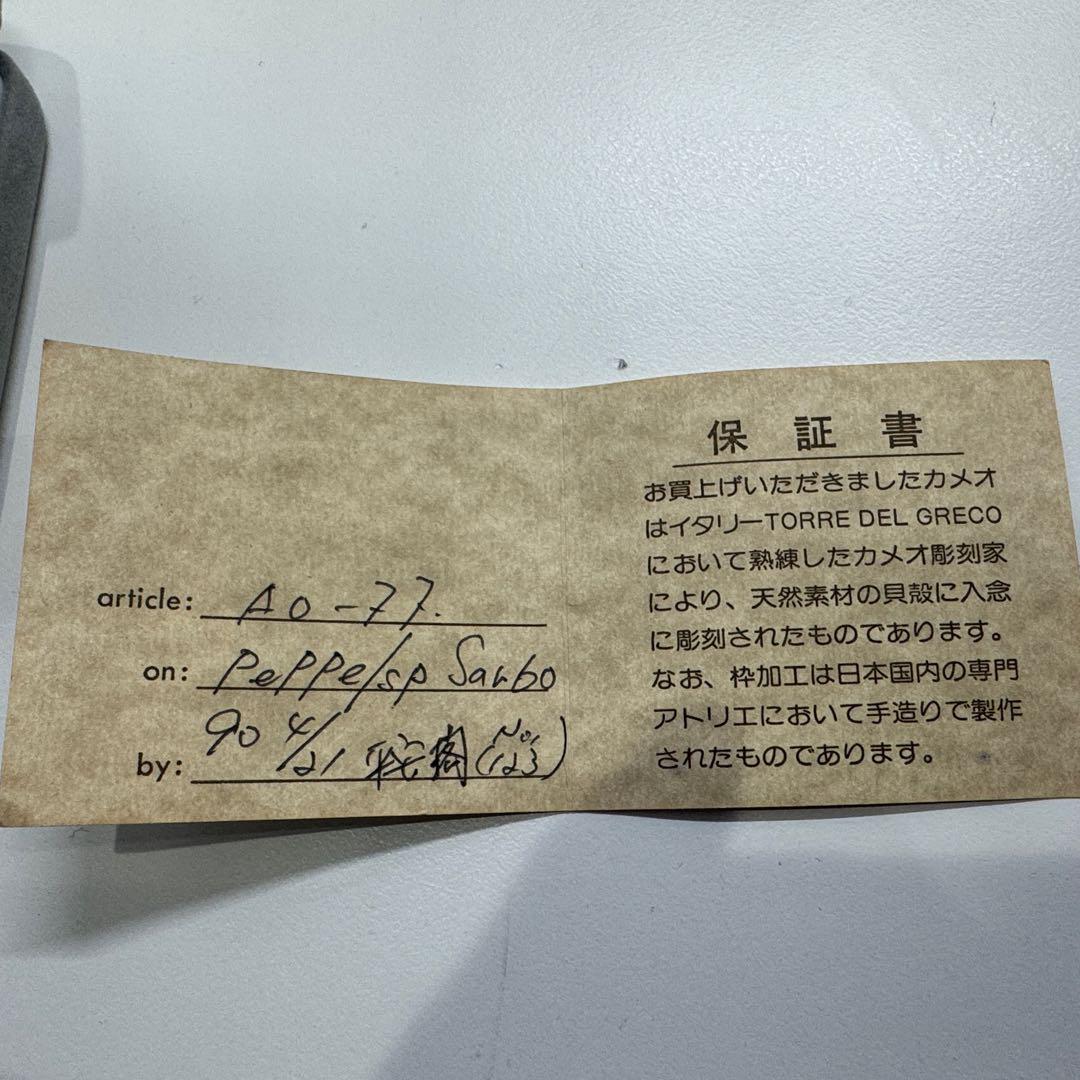 article: AO-77.
on: Peppe/sp Sarbo
90 4/21
by: 閣 (No. 123)
保証書
お買上げいただきましたカメオ
はイタリーTORRE DEL GRECO
において熟練したカメオ彫刻家
により、天然素材の貝殻に入念
に彫刻されたものであります。
なお、枠加工は日本国内の専門
アトリエにおいて手造りで製作
されたものであります。